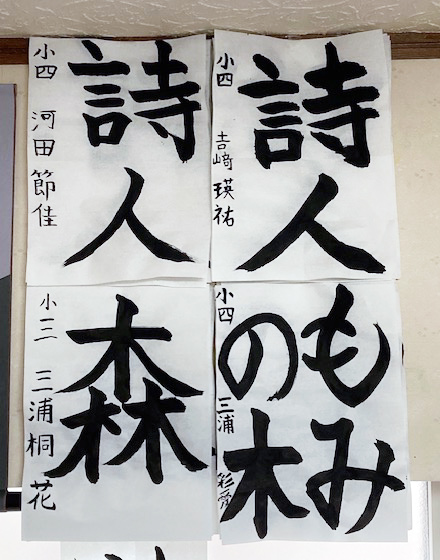 詩人
小四 吉﨑瑛祐
詩人
小四 河田節佳
もみ
の木
小四 三浦彩愛
森
小三 三浦桐花